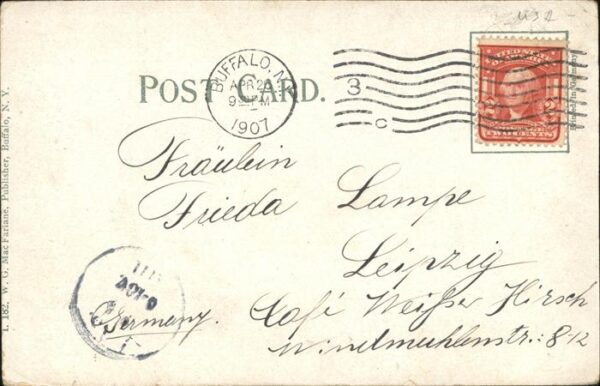 POST CARD.
BUFFALO, N.Y.
APR 2
9 PM
1907
3
C
TWO CENTS
Fräulein
Frieda Lampe
Leipzig
Café Weißer Hirsch
Windmühlenstr.: 8-12
Germany.
1. 182. W. G. MacFarlane, Publisher, Buffalo, N. Y.